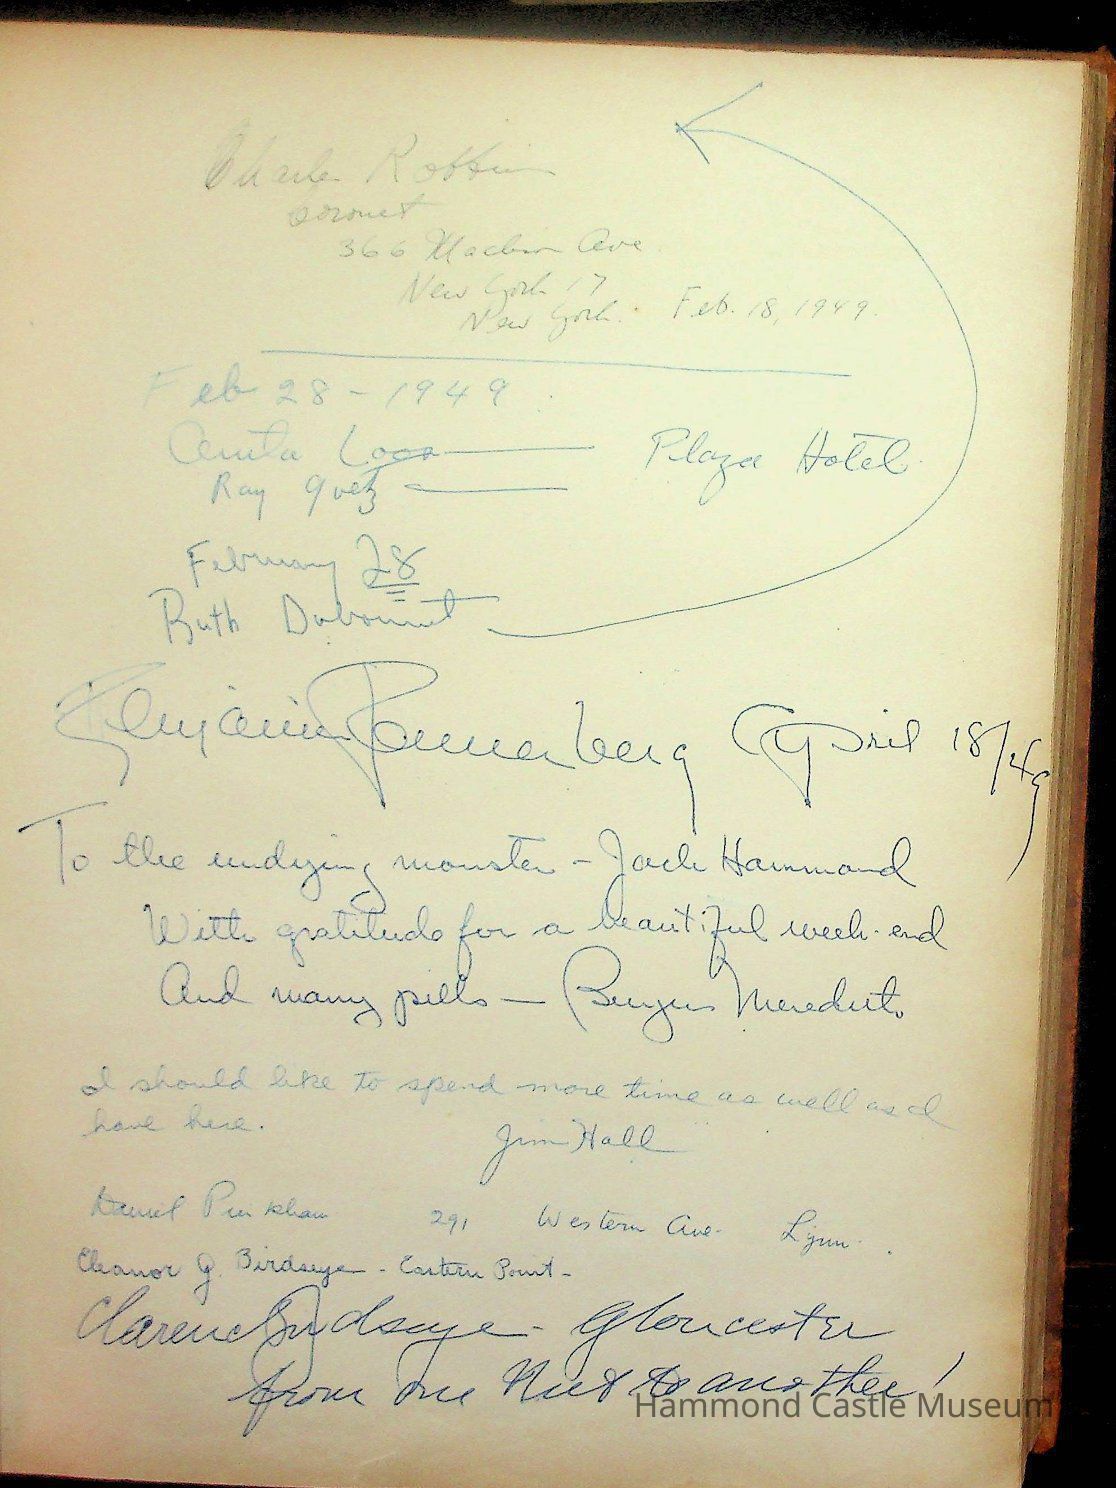 Charles Robbins
Coronet
366 Madison Ave
New York 17
New York. Feb. 18, 1949.
Feb 28 - 1949
Anita Loos Plaza Hotel
Ray Goetz
February 28
Ruth Dubonnet
Benjamin Sonnenberg April 18/49
To the undying monster - Jack Hammond
With gratitude for a beautiful week-end
And many pills - Burgess Meredith
I should like to spend more time as well as I
have here.
Jim Hall
Daniel Pinkham 291 Western Ave. Lynn.
Eleanor G. Birdseye - Eastern Point -
Clarence Birdseye - Gloucester
from one Nut to another!
Hammond Castle Museum